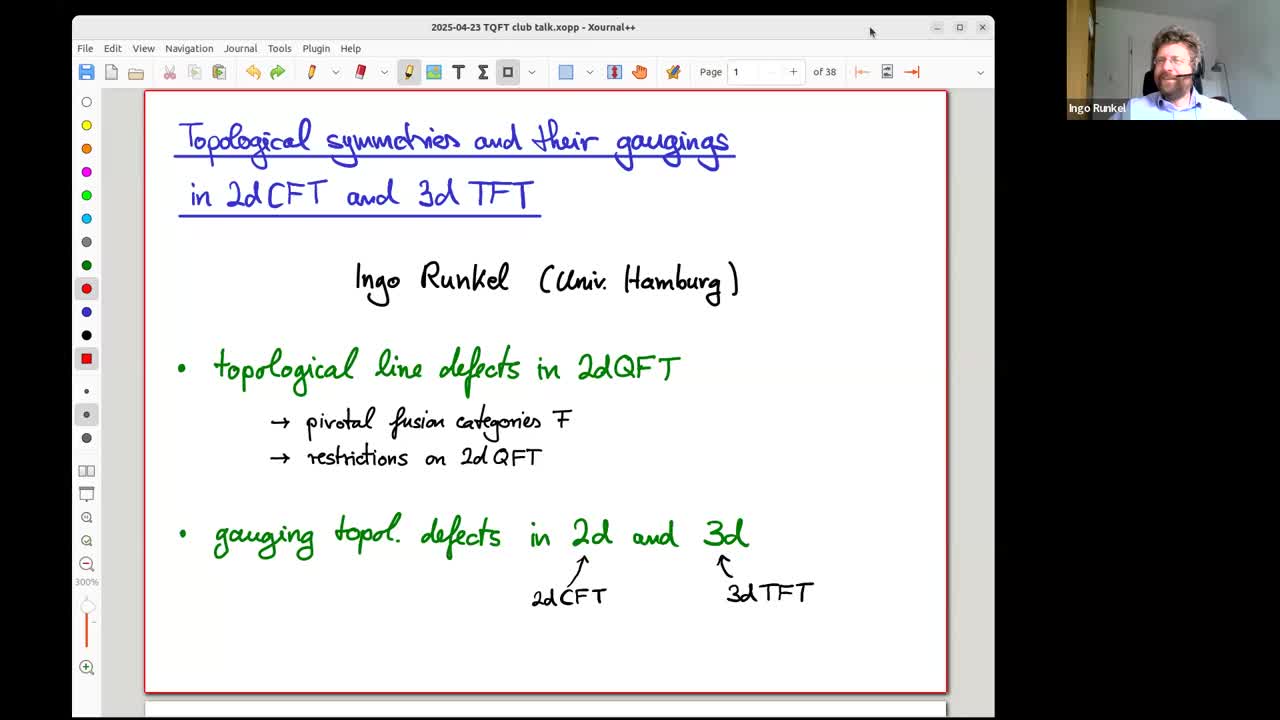 2025-04-23 TQFT club talk.xopp - Xournal++
File Edit View Navigation Journal Tools Plugin Help
Page 1 of 38
300%
Topological symmetries and their gaugings
in 2d CFT and 3d TFT
Ingo Runkel (Univ. Hamburg)
• topological line defects in 2d QFT
→ pivotal fusion categories F
→ restrictions on 2d QFT
• gauging topol. defects in 2d and 3d
2d CFT 3d TFT
Ingo Runkel